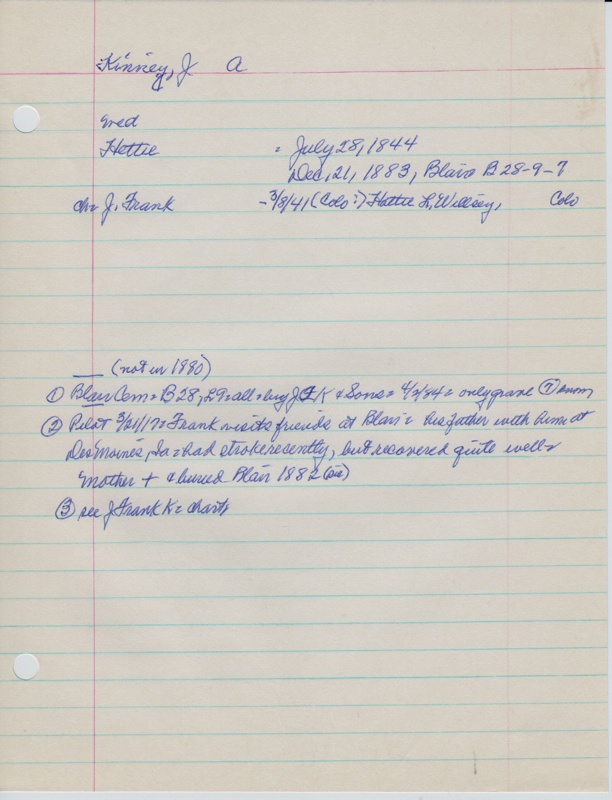 Kinney, J A
Hettie = July 28, 1844
Dec, 21, 1883, Blair B 28-9-7
ch= J. Frank - 3/8/41 (Colo:) Hattie L. Willsey, Colo
___ (not in 1880)
① Blair Cem= B 28, L 9= all= buy J K & Sons= 4/2/84= only grave ⑦
② Pilot 3/21/17= Frank visits friends at Blair= his father with him at
Des Moines, Ia= had stroke recently, but recovered quite well=
Mother + & buried Blair 1882 (sic)
③ see J Frank K= charts